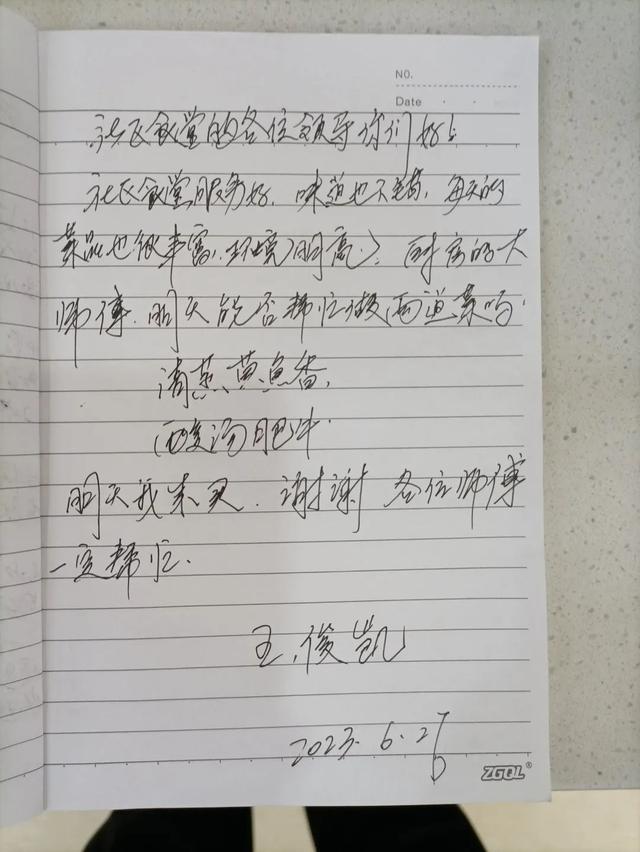 NO.
Date
社区食堂的各位领导你们好!
社区食堂服务好,味道也不错,每天的
菜品也很丰富,环境明亮,厨房的大
师傅,明天能否帮忙做两道菜吗.
清蒸黄鱼鲞,
酸汤肥牛.
明天我来买.谢谢各位师傅
一定帮忙.
王俊凯
2023.6.27
ZGQL®